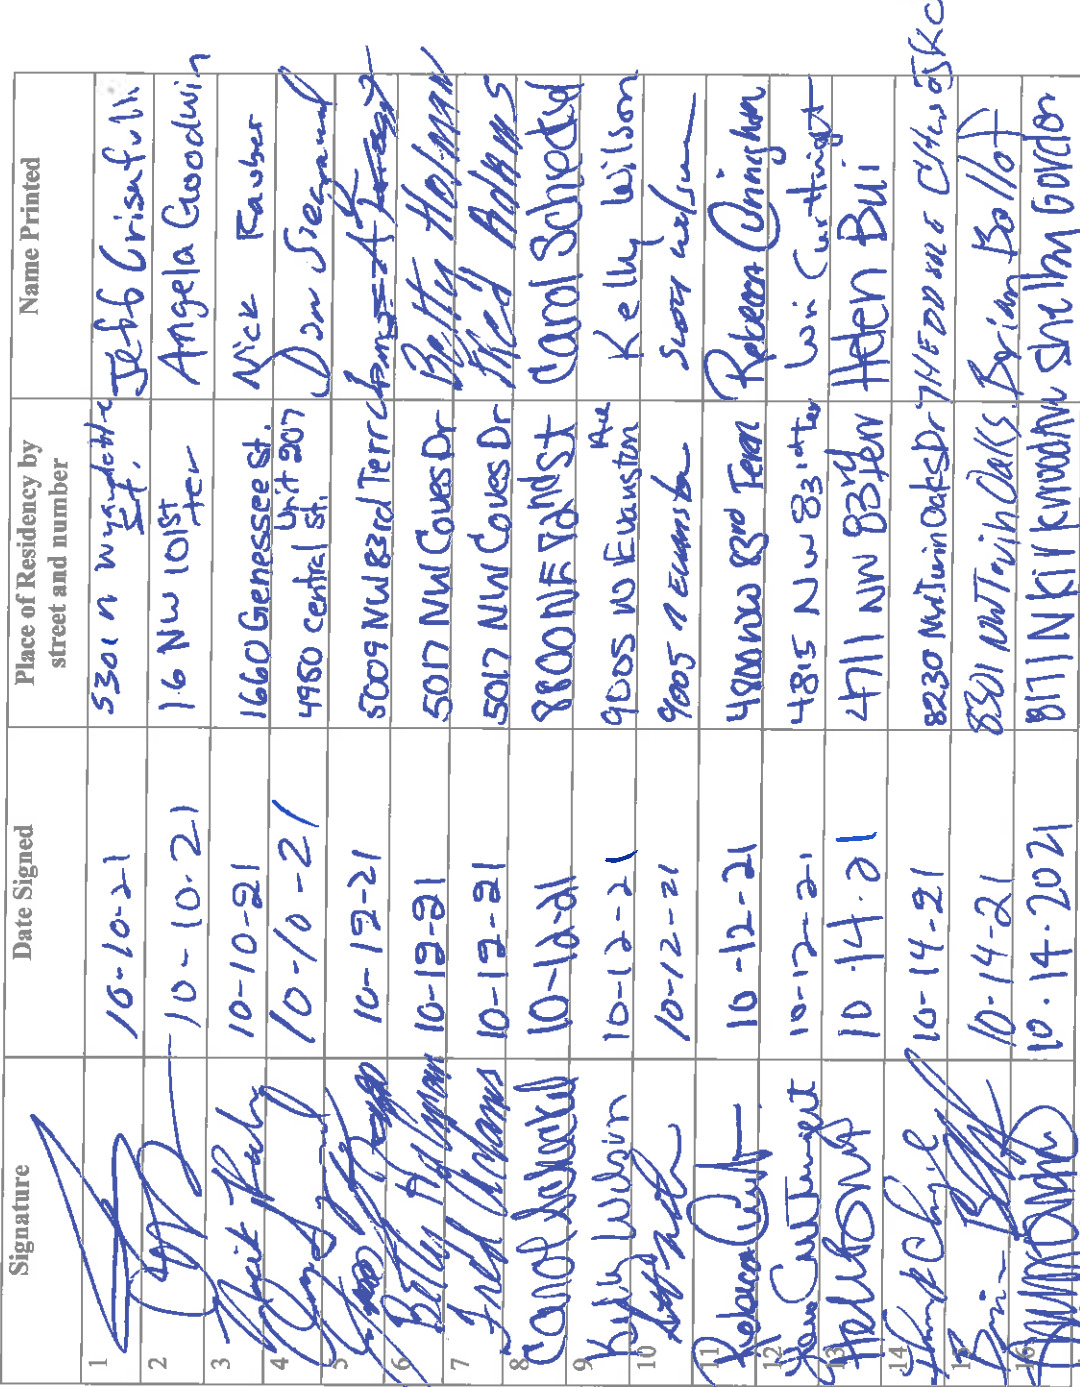 Signature Date Signed Place of Residency by street and number Name Printed
1 10-10-21 5301 n wyandotte st. Jeff Crisafulli
2 10-10-21 16 NW 101st ter Angela Goodwin
3 10-10-21 1660 Genessee St. Nick Rauber
4 10-10-21 4950 central st. Unit 207 Dan
5 10-12-21 5009 NW 83rd Terr
6 Betty Holman 10-12-21 5017 NW Coves Dr Betty Holman
7 Fred Adams 10-12-21 5017 NW Coves Dr Fred Adams
8 Carol 10-12-21 8800 NE 82nd St Carol
9 Kelly Wilson 10-12-21 9005 N Evanston Ave Kelly Wilson
10 10-12-21 9005 N Evanston Scott Wilson
11 Rebecca 10-12-21 4800 NW 83rd Terr Rebecca
12 10-12-21 4815 NW 83rd ter Curthright
13 10.14.21 4711 NW 83rd Terr Helen Bui
14 10-14-21 8230 NW Twin Oaks Dr THEODORE
15 10-14-21 8301 NW Twin Oaks Brian Ballot
16 10.14.2021 8171 N Kirkwood Ave Shelby Gordon